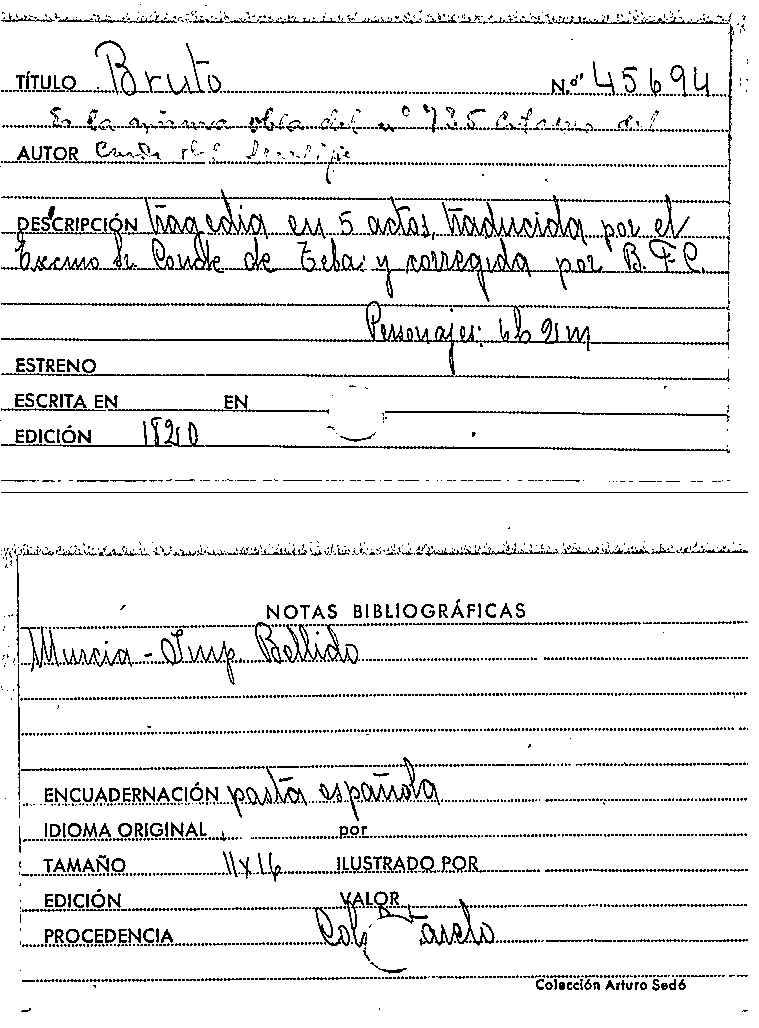 TÍTULO Bruto N.º 45694
Es la misma obra del nº 735 del
AUTOR Conde del
DESCRIPCIÓN tragedia en 5 actos, traducida por el
Excmo Sr. Conde de Teba y corregida por B. F. C.
Personajes: 6h 2m
ESTRENO
ESCRITA EN EN
EDICIÓN 1820
NOTAS BIBLIOGRÁFICAS
Murcia - Imp. Bellido
ENCUADERNACIÓN pasta española
IDIOMA ORIGINAL por
TAMAÑO 11x16 ILUSTRADO POR
EDICIÓN VALOR
PROCEDENCIA
Colección Arturo Sedó